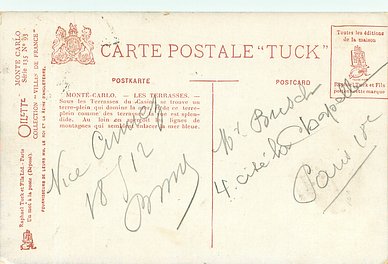 CARTE POSTALE "TUCK"
Toutes les éditions
de la maison
Raphael Tuck et Fils
portent cette marque
POSTKARTE
POSTCARD
MONTE-CARLO. — LES TERRASSES. —
Sous les Terrasses du Casino se trouve un
terre-plein qui domine la mer. De ce terre-
plein comme des terrasses la vue est splen-
dide. Au loin on aperçoit les lignes de
montagnes qui semblent enlacer la mer bleue.
MONTE CARLO
Série 135 Nº 93
OILETTE
COLLECTION "VILLES DE FRANCE"
Raphael Tuck et Fils Ltd. - Paris
Un mot à la poste (Déposé).
FOURNISSEURS DE LEURS MM. LE ROI ET LA REINE D'ANGLETERRE
Nice
18/5/12
Mr.
4 cité la Chapelle
Paris 18e